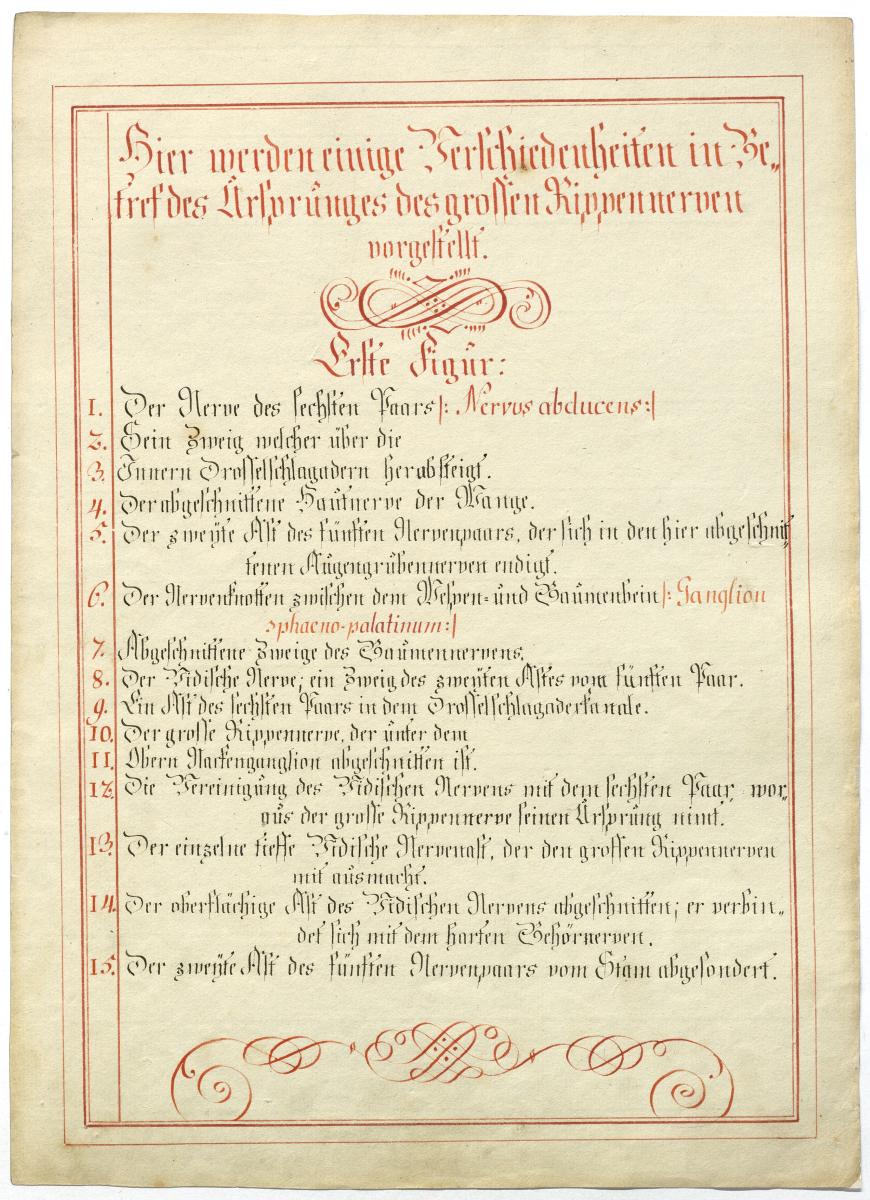 Hier werden einige Verschiedenheiten in Be„
tref des Ursprunges des grossen Rippennerven
vorgestellt.
Erste Figur:
1. Der Nerve des sechsten Paars |: Nervus abducens:|
2. Sein Zweig welcher über die
3. Innern Drosselschlagadern herabsteigt.
4. Der abgeschnittene Hautnerve der Wange.
5. Der zweÿte Ast des fünften Nervenpaars, der sich in den hier abgeschnit„
tenen Augengrubennerven endigt.
6. Der Nervenknotten zwischen dem Wespen= und Gaumenbein |: Ganglion
sphaeno-palatinum:|
7. Abgeschnittene Zweige des Gaumennervens.
8. Der Vidische Nerve; ein Zweig des zweÿten Astes vom fünften Paar.
9. Ein Ast des sechsten Paars in dem Drosselschlagaderkanale.
10. Der grosse Rippennerve, der unter dem
11. Obern Nackenganglion abgeschnitten ist.
12. Die Vereinigung des Vidischen Nervens mit dem sechsten Paar, wor„
aus der grosse Rippennerve seinen Ursprung nimt.
13. Der einzelne tieffe Vidische Nervenast, der den grossen Rippennerven
mit ausmacht.
14. Der oberflächige Ast des Vidischen Nervens abgeschnitten; er verbin„
det sich mit dem harten Gehörnerven.
15. Der zweÿte Ast des fünften Nervenpaars vom Stam abgesondert.